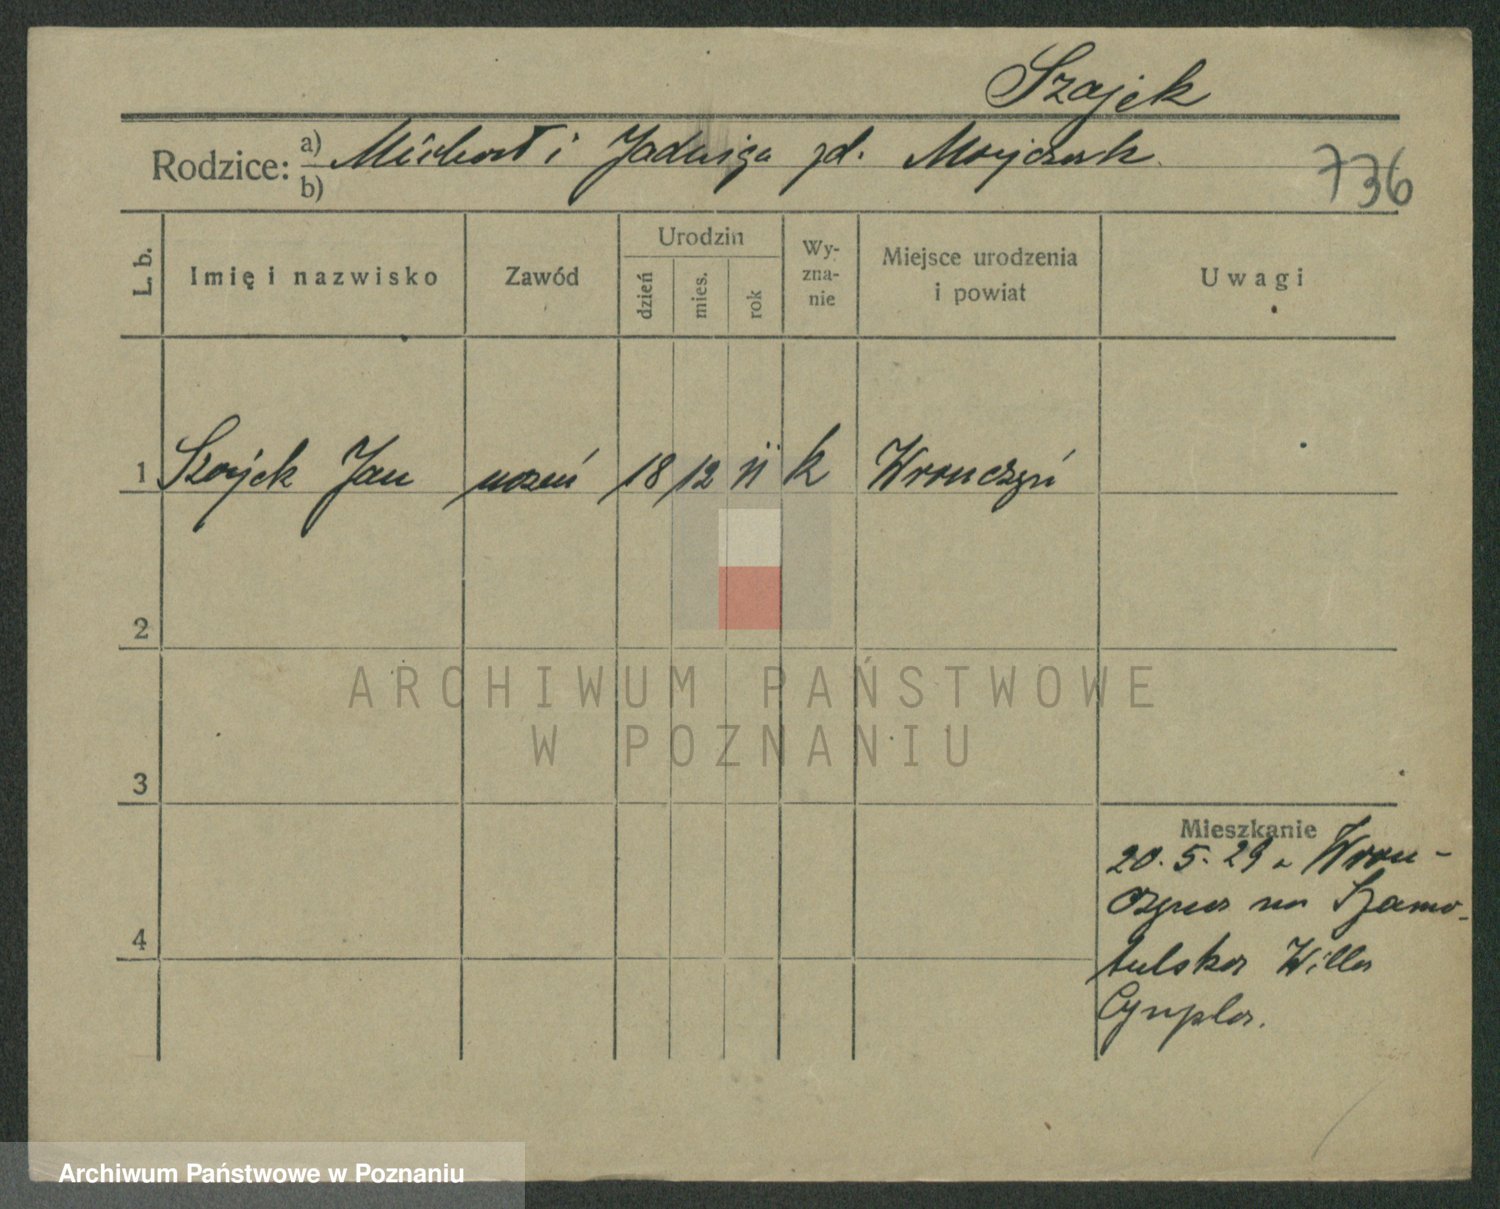 Szajek
Rodzice: a) Michał i Jadwiga zd. Majczak
b)
736
L. b.
Imię i nazwisko
Zawód
Urodzin
dzień
mies.
rok
Wy-
zna-
nie
Miejsce urodzenia
i powiat
Uwagi
1 Szajek Jan uczeń 18 12 11 k Wronczyn
2
3
4
Mieszkanie
20. 5. 29 z Wron-
czyna na Szamo-
tulska Willa
ARCHIWUM PAŃSTWOWE
W POZNANIU
Archiwum Państwowe w Poznaniu